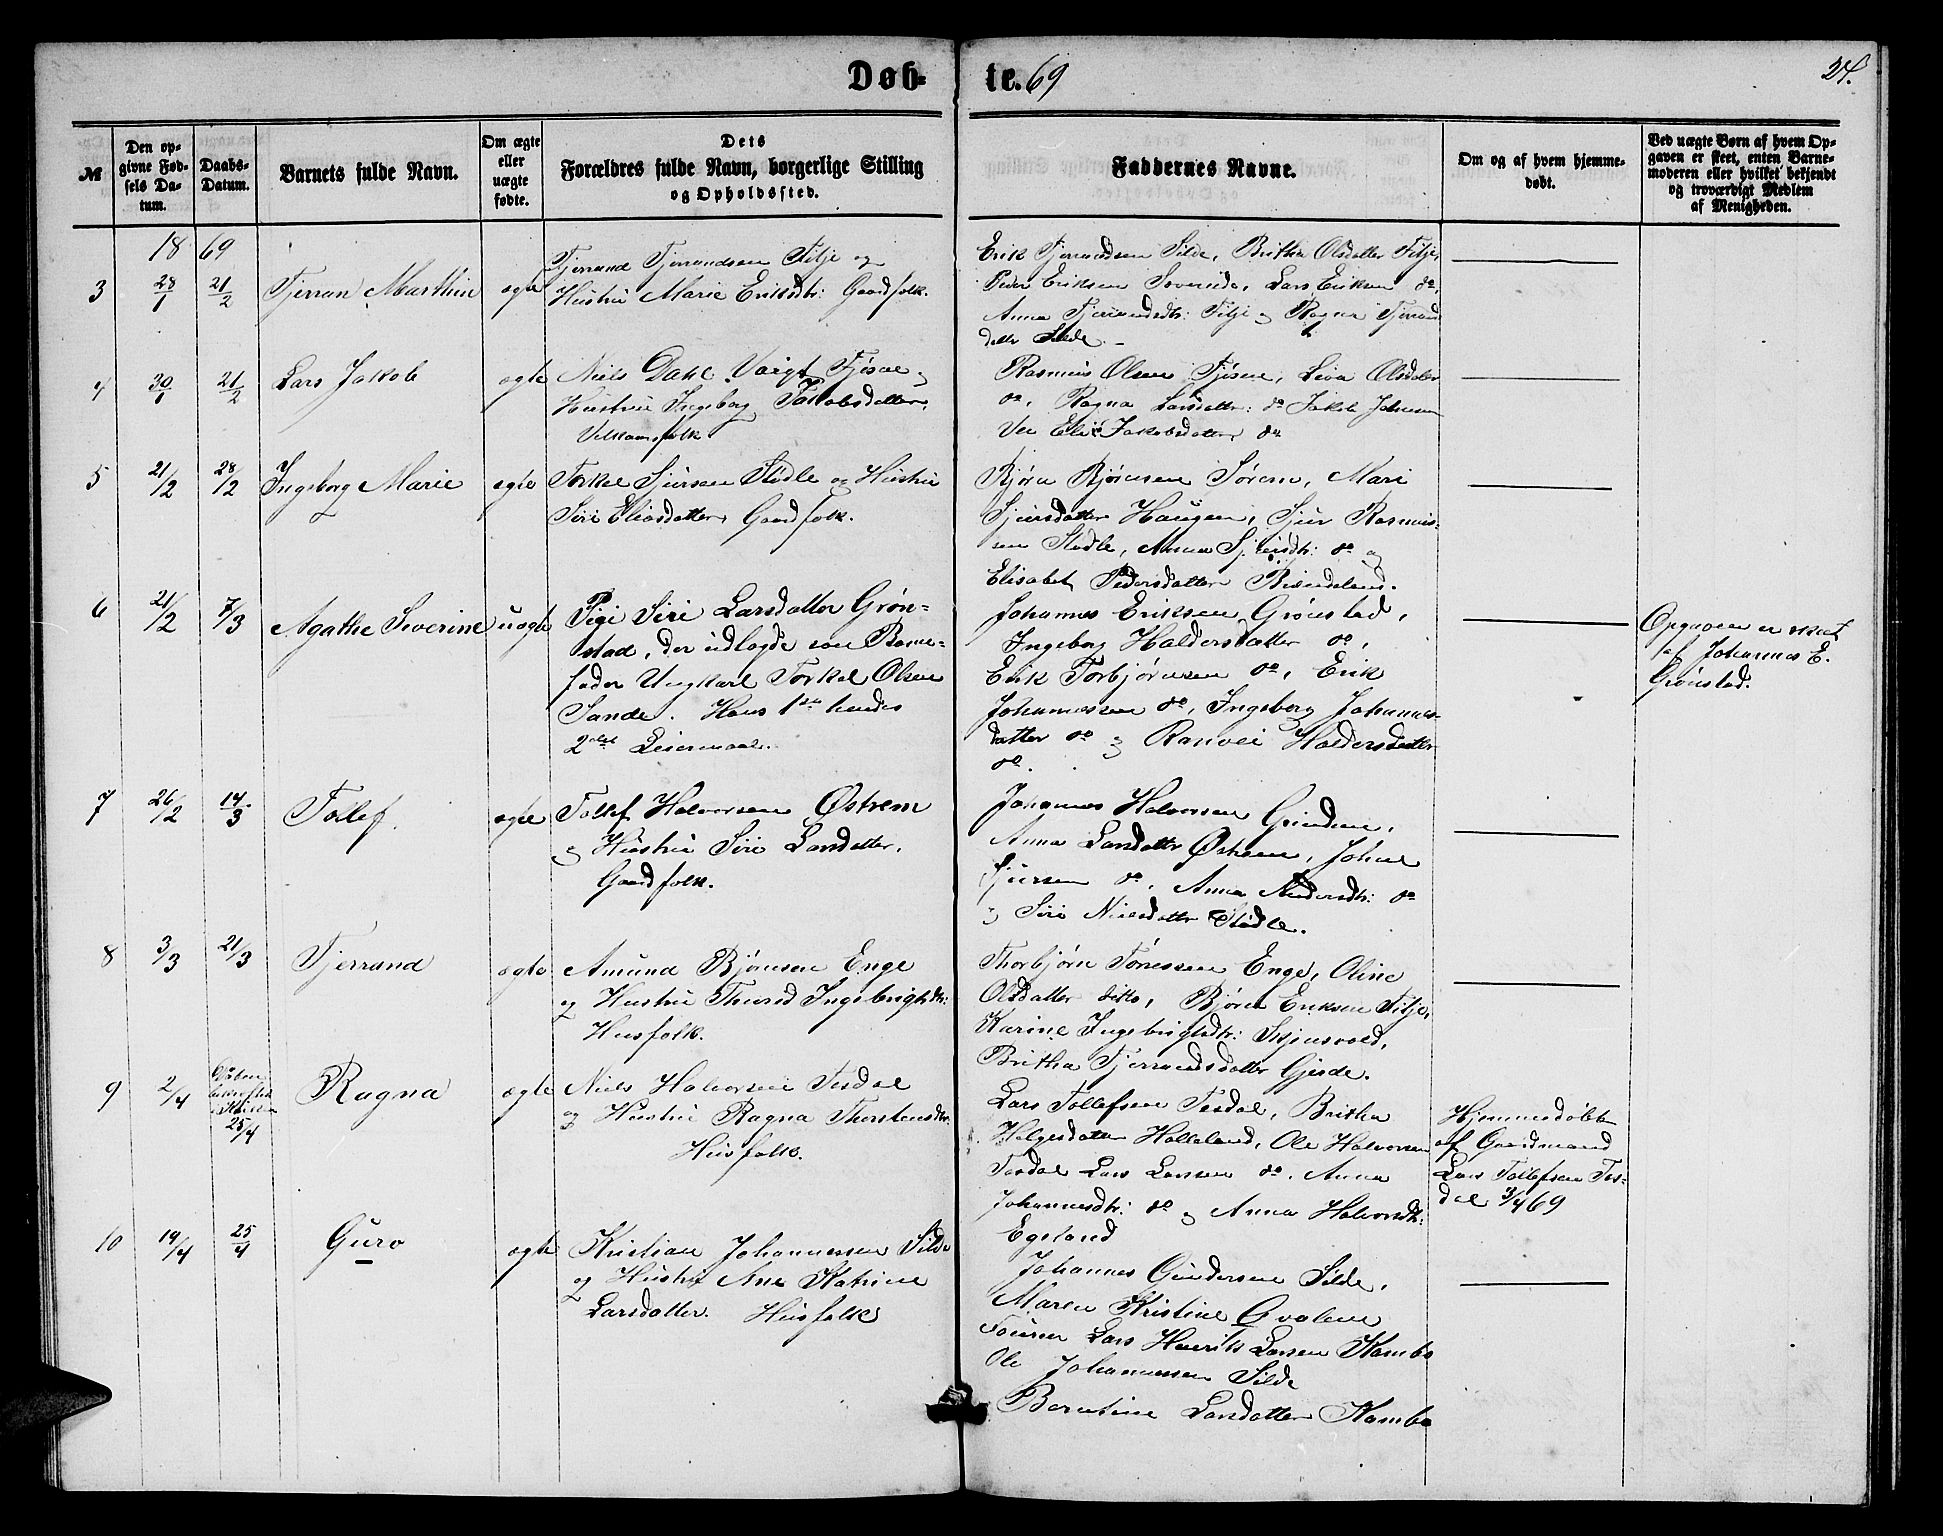 Døb-
te. 69
24.
№
Den op-
givne Fød-
sels Da-
tum.
Daabs-
Datum.
Barnets fulde Navn.
Om ægte
eller
uægte
fødte.
Dets
Forældres fulde Navn, borgerlige Stilling
og Opholdssted.
Faddernes Navne.
Om og af hvem hjemme-
døbt.
Ved uægte Børn af hvem Op-
gaven er skeet, enten Barne-
moderen eller hvilket bekjendt
og troværdigt Medlem
af Menigheden.
18 69
3
28/1
21/2
Tjerran Marthin
ægte
Tjerrand Tjerrandsen Silje og
Hustru Marie Eriksdtr: Gaardfolk.
Erik Tjerrandsen Silde, Britha Olsdatter Silje,
Peder Eriksen Lars Eriksen do,
Anna Tjerrandsdtr: Silje og Ragna Tjerran
datter Silde.
4
30/1
21/2
Lars Jakob
ægte
Niels Dahl Voigt Tjøsae og
Hustru Ingeborg Jakobsdatter,
Rasmus Olsen Tjøsene, Olsdatter
do, Ragna Larsdatter: do Jakob Johnsen
Jakobsdatter do
5
21/2
28/2
Ingeborg Marie
ægte
Torkel Sjursen Stødle og Hustru
Siri Eliasdatter, Gaardfolk.
Bjørn Bjørnsen Sørem, Mari
Sjursdatter Haugen, Sjur Rasmus-
sen Stødle, Anna Sjursdtr: do og
Elisabet Pedersdatter
6
21/2
7/3
Agathe Severine
uægte
Pige Siri Larsdatter Grøn-
stad, der udlagde som Barne-
fader Ungkarl Torkel Olsen
Sande. Hans 1ste hendes
2det Leiermaal.
Johannes Eriksen Grønstad,
Ingeborg Haldorsdatter do,
Erik Torbjørnsen do, Erik
Johannessen do, Ingeborg Johannes-
datter do og Ranvei Haldorsdatter
do.
Opgaven er skeet
af Johannes E.
Grønstad.
7
26/2
14/3
Tollef.
ægte
Tollef Halvorsen Østrem
og Hustru Siri Larsdatter,
Gaardfolk.
Johannes Halvorsen Grindene,
Anna Larsdatter Østrem, Johne
Sjursen do, Anna Andersdtr: do
og Siri Nielsdatter Stødle.
8
3/3
21/3
Tjerrand
ægte
Amund Bjørnsen Enge
og Hustru Thurid Ingebrigtsdtr:
Husfolk.
Thorbjørn Tønessen Enge, Oline
Olsdatter ditto, Bjørn Eriksen Silje,
Karine Ingebrigtsdtr: Skjensvold,
Britha Tjerrandsdatter Gjerde.
9
2/4
Daaben
bekræftet
i Kirken
25/4
Ragna
ægte
Niels Halvorsen Tesdal
og Hustru Ragna Thorstensdtr:
Husfolk.
Lars Tollefsen Tesdal, Britha
Helgesdatter Halleland, Ole Halvorsen
Tesdal Lars Larsen do. Anna
Johannesdtr: do og Anna Halvorsdtr:
Egeland
Hjemmedøbt
af Gaardmand
Lars Tollefsen Tes-
dal 3/4 69
10
19/4
25/4
Guro
ægte
Kristian Johannessen Silde
og Hustru Ane Katrine
Larsdatter. Husfolk
Johannes Gundersen Silde,
Maren Kristine Qvalene
Lars Henrik Larsen Kambe
Ole Johannessen Silde
Berntine Larsdatter Kambe